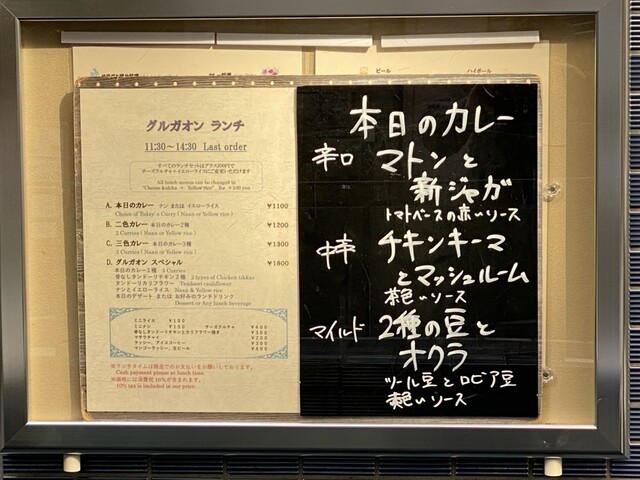 ビール
ハイボール
グルガオン ランチ
11:30～14:30 Last order
すべてのランチセットはプラス200円で
チーズクルチャ・イエローライスにご変更いただけます
All lunch menus can be changed to
A. 本日のカレー ナン または イエローライス ¥1100
Choice of Today's Curry ( Naan or Yellow rice)
B. 二色カレー 本日のカレー2種 ¥1200
2 Curries ( Naan or Yellow rice)
C. 三色カレー 本日のカレー3種 ¥1300
3 Curries ( Naan or Yellow rice)
D. グルガオン スペシャル ¥1800
本日のカレー3種 3 Curries
骨なしタンドーリチキン2種 2 types of Chicken tikkas
タンドーリカリフラワー Tandoori cauliflower
ナンとイエローライス Naan & Yellow rice
本日のデザート または お好みのランチドリンク
Dessert or Any lunch beverage
ミニライス ¥100
ミニナン ¥150 チーズクルチャ ¥400
骨なしタンドーリチキンとカリフラワー焼き
マサラチャイ
ラッシー、アイスコーヒー
マンゴーラッシー、生ビール
※ランチタイムは現金でのお支払いをお願いしております。
Cash payment please at lunch time.
※価格には消費税10%が含まれます。
10% tax is included in our price.
本日のカレー
辛口 マトンと
新ジャガ
トマトベースの赤いソース
中辛 チキンキーマ
とマッシュルーム
茶色いソース
マイルド 2種の豆と
オクラ
ツール豆とロビア豆
黄色いソース